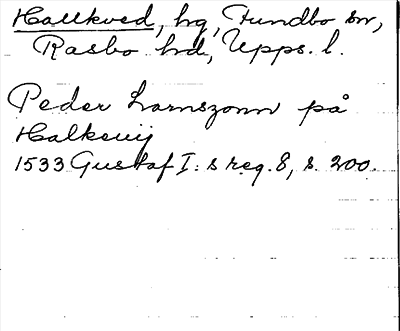 Hallkved, hg, Funbo sn,
Rasbo hd, Upps. l.
Peder Larnszonn på
Halkevij
1533 Gustaf I:s reg. 8, s. 200.